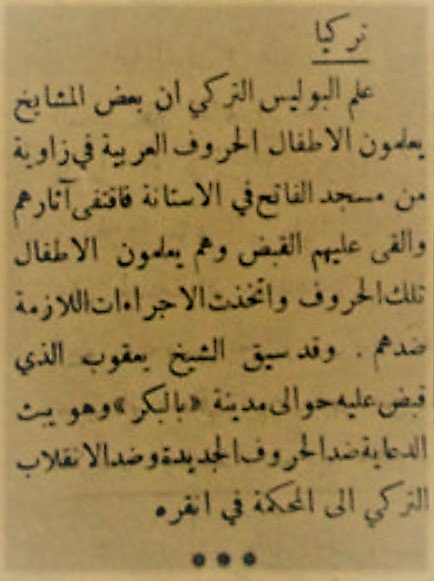 تركيا
علم البوليس التركي ان بعض المشايخ
يعلمون الاطفال الحروف العربية في زاوية
من مسجد الفاتح في الاستانة فاقتفى آثارهم
والقى عليهم القبض وهم يعلمون الاطفال
تلك الحروف واتخذت الاجراءات اللازمة
ضدهم . وقد سيق الشيخ يعقوب الذي
قبض عليه حوالى مدينة «بالبكر» وهو يبث
الدعاية ضد الحروف الجديدة وضد الانقلاب
التركي الى المحكمة في انقره